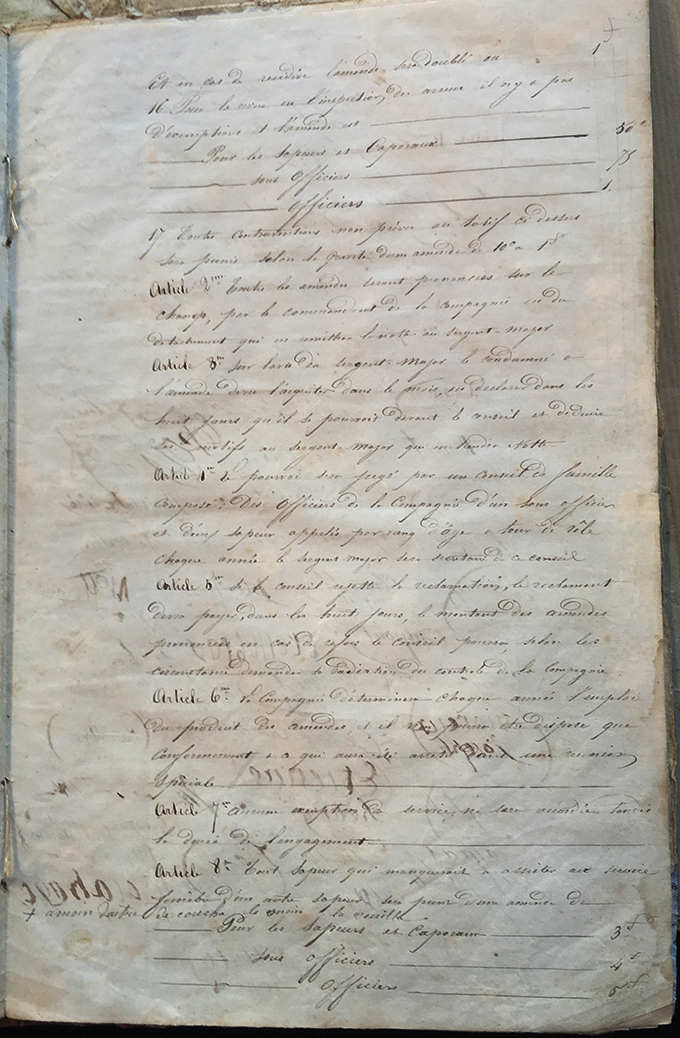 1 f
Et en cas de recidive l'amende sera doublé ou
16 Pour la revue ou l'inspection des armes il n'y a pas
d'exemptions et l'amende est
Pour les Sapeurs et Caporaux 50 c
sous Officiers 75
Officiers 1.
17 Toutes contraventions non prévue au tarif ci dessus
sera punie selon la gravité d'une amende de 10 c a 1 f
Article 2me Toutes les amendes seront prononcées sur le
champ, par le commandant de la compagnie ou du
detachement qui en remettra la note au sergent-major
Article 3me Sur l'avis du sergent-Major le condamné a
l'amende devra l'acquitter dans le mois, ou declarer dans les
huit jours qu'il se pourvoit devant le conseil et déduire
ses motifs au sergent-major qui en tiendra Note
Article 4me Le pourvoi sera jugé par un conseil de famille
composé, Des Officiers de la Compagnie d'un sous officier
et d'un sapeur appelés par rang d'âge a tour de rôle
chaque année le sergent major sera secretaire de ce conseil
Article 5me Si le conseil rejette la reclamation, le reclamant
devra payer, dans les huit jours, le montant des amendes
prononcées en cas de refus le Conseil pourra, selon les
circonstance demander la radiation du controle de la Compagnie
Article 6me La Compagnie déterminera chaque année l'emploi
du produit des amendes, et il ne pourra être disposé que
Conformement a ce qui aura été arreté dans une reunion
Spéciale
Article 7me aucune exemption de service ne sera accordée
la durée de l'engagement
Article 8me Tout sapeur qui manquerait a assister au service
funèbre d'un autre sapeur sera puni d'une amende de
+ a moin d'aitre de la veille
Pour les Sapeurs et Caporaux 3 f
sous officiers 4 f
Officiers 5 f